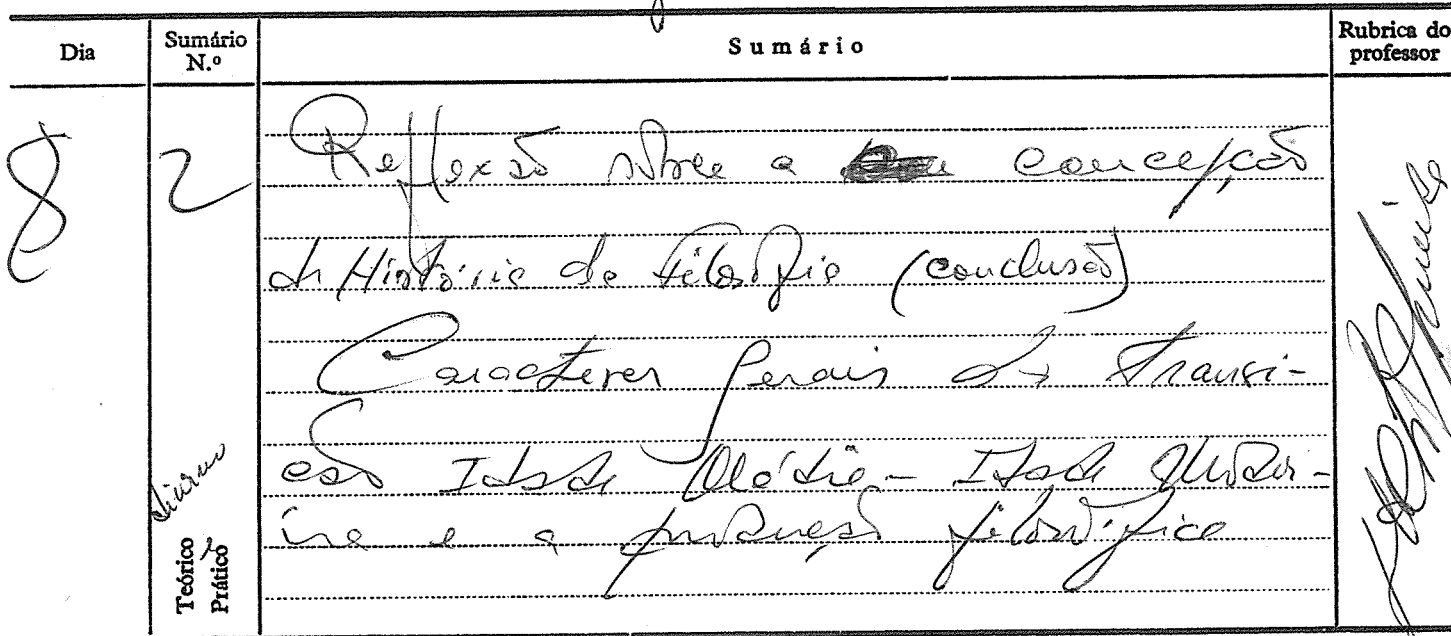 Dia
Sumário N.º
Sumário
Rubrica do professor
8
2
Reflexão sobre a concepção
da História da Filosofia (conclusão)
Caracteres gerais da transi-
ção Idade Média - Idade Moder-
na e a produção filosófica
diurno
Teórico
Prático